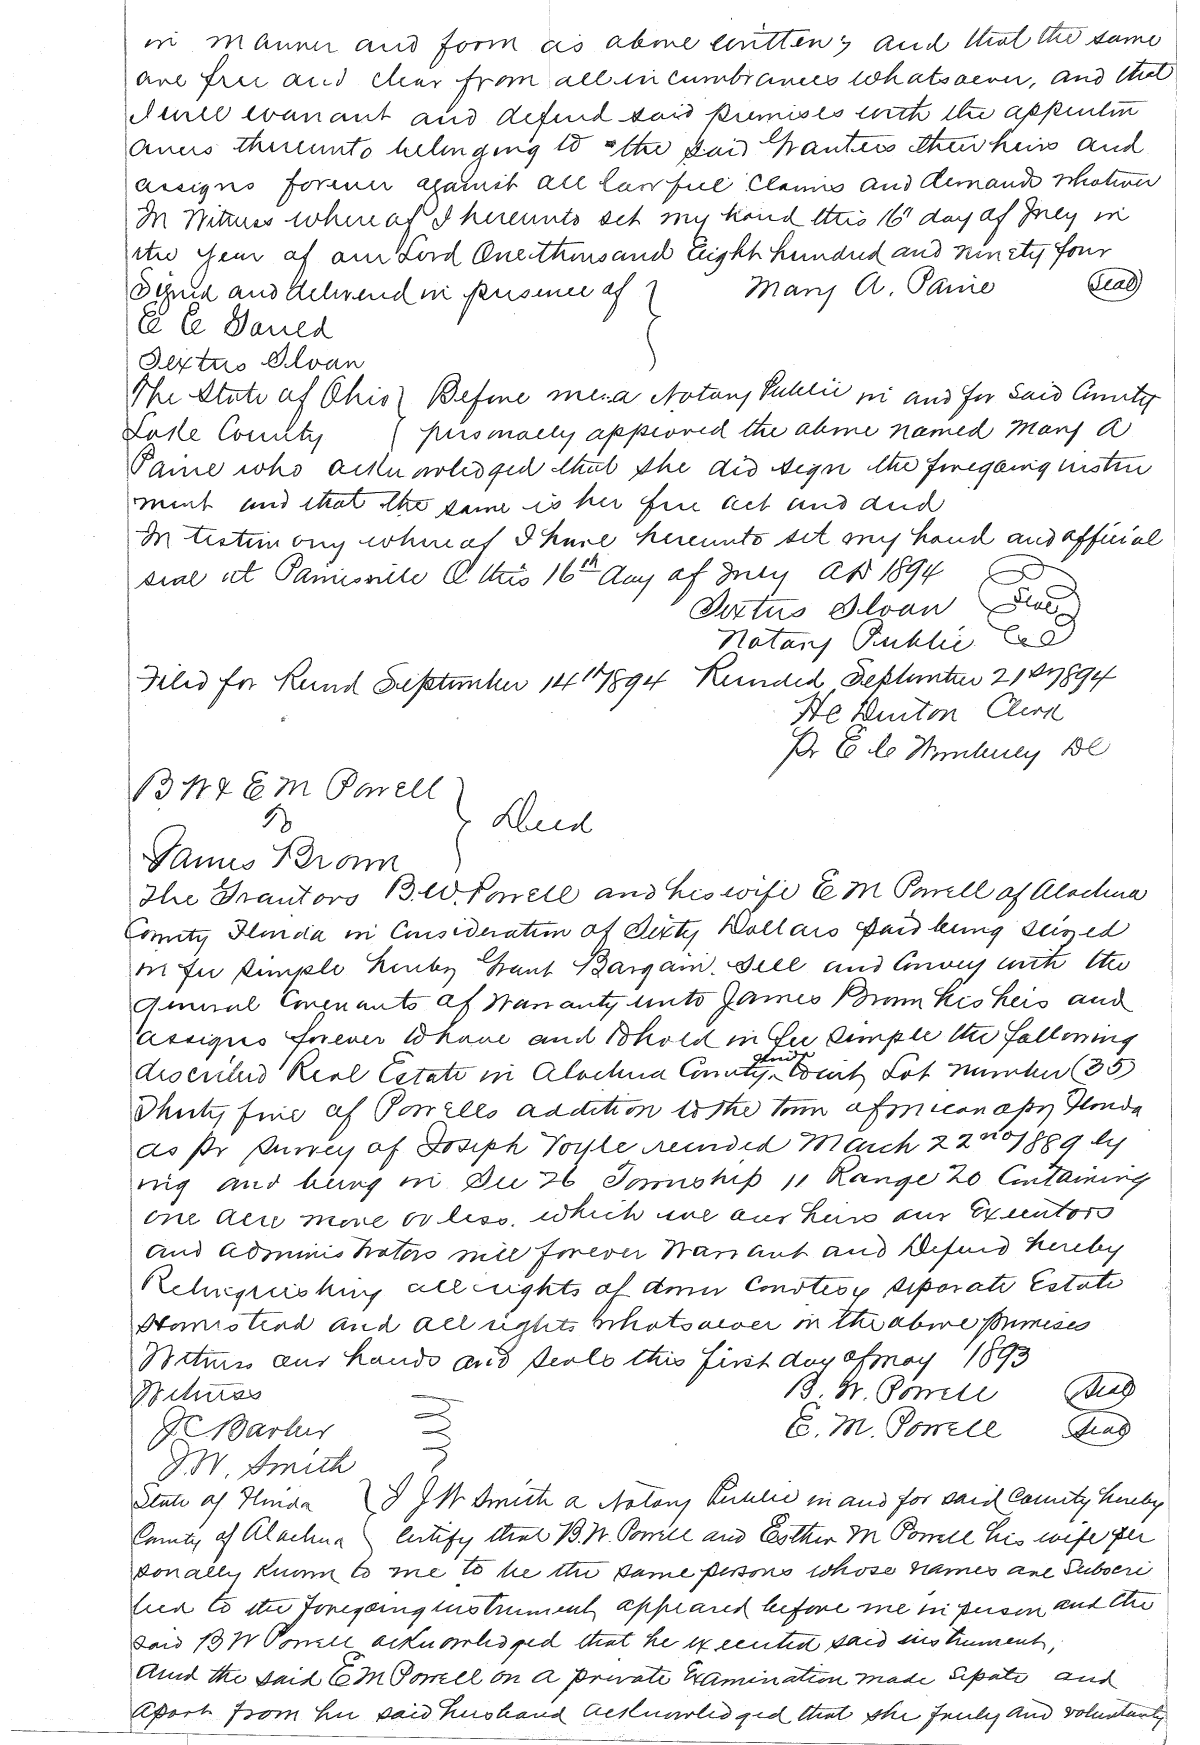 in manner and form as above written; and that the same
are free and clear from all incumbrances whatsoever, and that
I will warrant and defend said premises with the appurten
ances thereunto belonging to the said Grantees their heirs and
assigns forever against all lawful claims and demands whatever
In Witness whereof I hereunto set my hand this 16" day of July in
the year of our Lord One thousand Eight hundred and ninety four
Signed and delivered in presence of Mary A. Paine Seal
E E
Sextus Sloan
The State of Ohio Before me a Notary Public in and for said County
Lake County personally appeared the above named Mary A
Paine who acknowledged that she did sign the foregoing instru
ment and that the same is her free act and deed
In testimony whereof I have hereunto set my hand and official
seal at Painesville O this 16th day of July AD 1894
Sextus Sloan Seal
Notary Public
Filed for Record September 14th 1894 Recorded September 21st 1894
H C Denton Clerk
Pr E C DC
B W & E M Powell
to Deed
James Brown
The Grantors B. W. Powell and his wife E M Powell of Alachua
County Florida in Consideration of Sixty Dollars paid being seized
in fee simple hereby Grant Bargain. Sell and Convey with the
general Covenants of Warranty unto James Brown his heis and
assigns forever to have and to hold in fee simple the following
described Real Estate in Alachua County to wit, Lot number (35)
Thirty five of Powells addition to the town of Micanopy Florida
as pr survey of Joseph Voyle recorded March 22nd 1889 ly
ing and being in Sec 26 Township 11 Range 20 Containing
one acre more or less. which we our heirs our Executors
and administrators will forever Warrant and Defend hereby
Relinquishing all rights of dower Courtesy separate Estate
Homestead and all rights whatsoever in the above premises
Witness our hands and seals this first day of May 1893
Witness B. W. Powell Seal
J C Barber E. M. Powell Seal
J. W. Smith
State of Florida I J W Smith a Notary Public in and for said County hereby
County of Alachua certify that B. W. Powell and Esther M Powell his wife per
sonally known to me to be the same persons whose names are Subscri
bed to the foregoing instrument, appeared before me in person and the
said B W Powell acknowledged that he executed said instrument,
and the said E M Powell on a private Examination made sepate and
apart from her said husband acknowledged that she freely and voluntarily